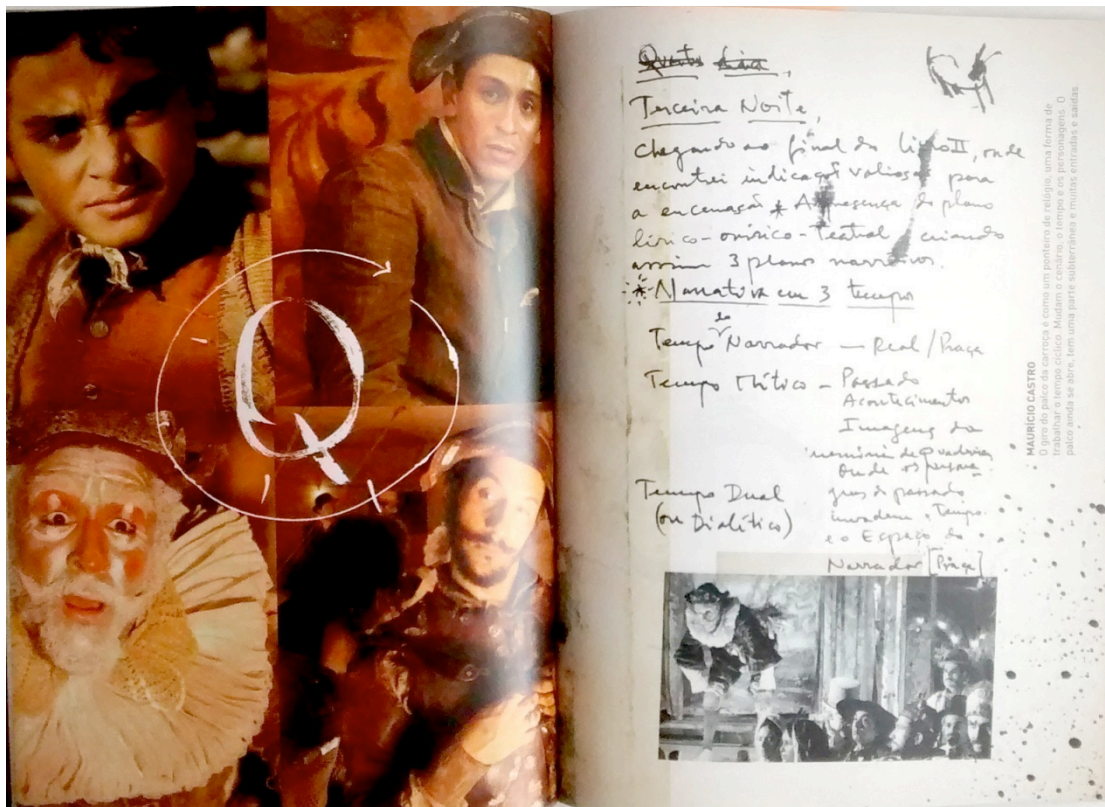 Q
Terceira Noite,
chegando ao final do livro II, onde
encontrei indicações valiosas para
a encenação * A presença do plano
lírico-onírico-teatral, criando
assim 3 planos narrativos.
* Narrativa em 3 tempos
Tempo do Narrador — Real / Praça
Tempo Mítico — Passado
Acontecimentos
Imagens da
memória de Quaderna,
Onde os persona-
gens do passado
Tempo Dual
(ou Dialítico)
invadem o Tempo
e o Espaço do
Narrador [Praça]
MAURÍCIO CASTRO
O giro do palco da carroça é como um ponteiro de relógio, uma forma de
trabalhar o tempo cíclico. Mudam o cenário, o tempo e os personagens. O
palco ainda se abre, tem uma parte subterrânea e muitas entradas e saídas